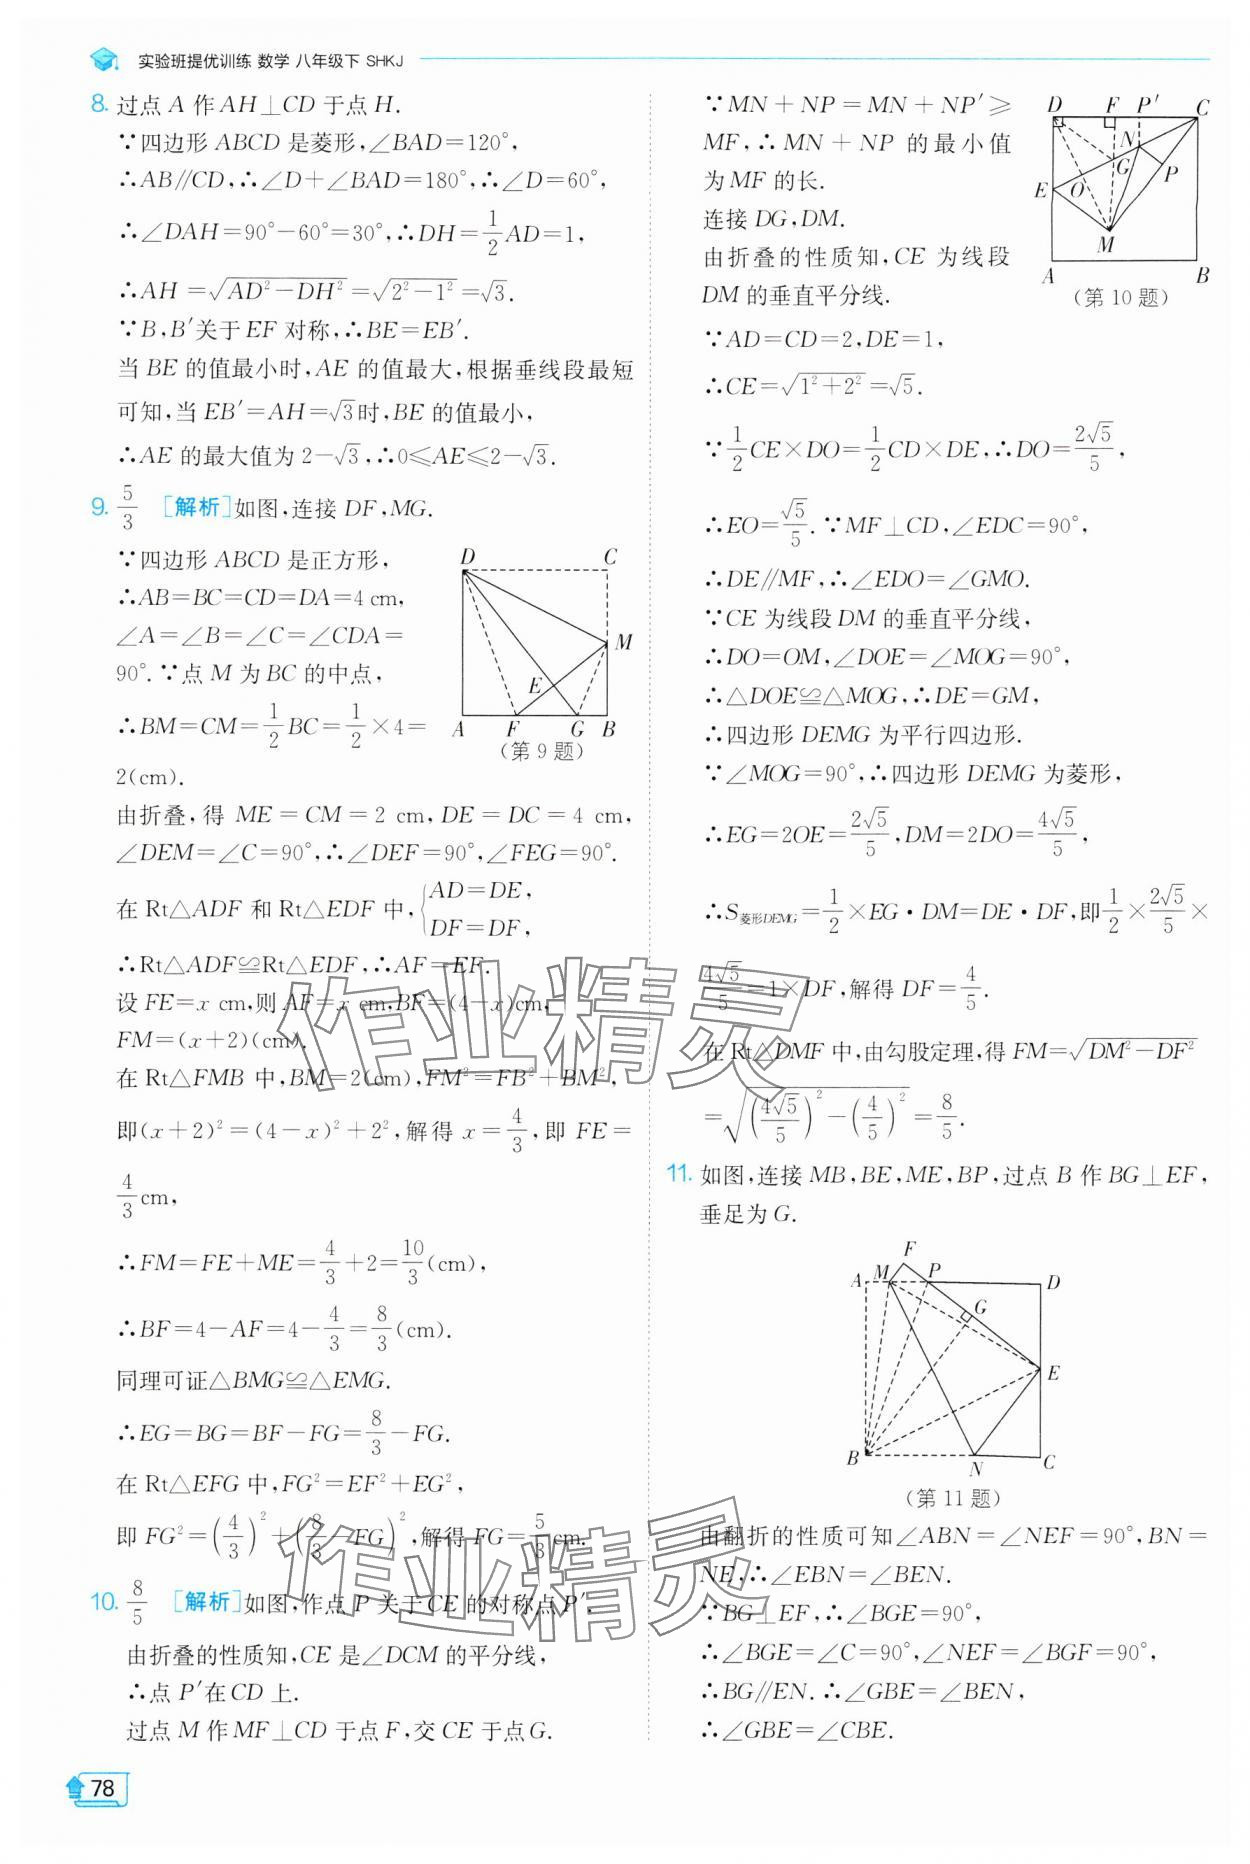 实验班提优训练 数学 八年级下 SHKJ
8. 过点 A 作 AH⊥CD 于点 H.
∵四边形 ABCD 是菱形,∠BAD=120°,
∴AB∥CD,∴∠D+∠BAD=180°,∴∠D=60°,
∴∠DAH=90°-60°=30°,∴DH=1/2AD=1,
∴AH=√(AD²-DH²)=√(2²-1²)=√3.
∵B,B′关于 EF 对称,∴BE=EB′.
当 BE 的值最小时,AE 的值最大,根据垂线段最短
可知,当 EB′=AH=√3时,BE 的值最小,
∴AE 的最大值为 2-√3,∴0≤AE≤2-√3.
9. 5/3 [解析]如图,连接 DF,MG.
∵四边形 ABCD 是正方形,
∴AB=BC=CD=DA=4 cm,
∠A=∠B=∠C=∠CDA=
90°.∵点 M 为 BC 的中点,
∴BM=CM=1/2BC=1/2×4=
2(cm).
D C M E A F G B
(第 9 题)
由折叠,得 ME=CM=2 cm,DE=DC=4 cm,
∠DEM=∠C=90°,∴∠DEF=90°,∠FEG=90°.
在 Rt△ADF 和 Rt△EDF 中,{AD=DE,
DF=DF,
∴Rt△ADF≌Rt△EDF,∴AF=EF.
设 FE=x cm,则 AF=x cm,BF=(4-x)cm,
FM=(x+2)(cm).
在 Rt△FMB 中,BM=2(cm),FM²=FB²+BM²,
即(x+2)²=(4-x)²+2²,解得 x=4/3,即 FE=
4/3 cm,
∴FM=FE+ME=4/3+2=10/3(cm),
∴BF=4-AF=4-4/3=8/3(cm).
同理可证△BMG≌△EMG.
∴EG=BG=BF-FG=8/3-FG.
在 Rt△EFG 中,FG²=EF²+EG²,
即 FG²=(4/3)²+(8/3-FG)²,解得 FG=5/3 cm.
10. 8/5 [解析]如图,作点 P 关于 CE 的对称点 P′,
由折叠的性质知,CE 是∠DCM 的平分线,
∴点 P′在 CD 上.
过点 M 作 MF⊥CD 于点 F,交 CE 于点 G.
78
∵MN+NP=MN+NP′≥
MF,∴MN+NP 的最小值
为 MF 的长.
连接 DG,DM.
由折叠的性质知,CE 为线段
DM 的垂直平分线.
D F P′ C N G P E O M A B
(第 10 题)
∵AD=CD=2,DE=1,
∴CE=√(1²+2²)=√5.
∵1/2CE×DO=1/2CD×DE,∴DO=2√5/5,
∴EO=√5/5.∵MF⊥CD,∠EDC=90°,
∴DE∥MF,∴∠EDO=∠GMO.
∵CE 为线段 DM 的垂直平分线,
∴DO=OM,∠DOE=∠MOG=90°,
∴△DOE≌△MOG,∴DE=GM,
∴四边形 DEMG 为平行四边形.
∵∠MOG=90°,∴四边形 DEMG 为菱形,
∴EG=2OE=2√5/5,DM=2DO=4√5/5,
∴S菱形DEMG=1/2×EG·DM=DE·DF,即1/2×2√5/5×
4√5/5=1×DF,解得 DF=4/5.
在 Rt△DMF 中,由勾股定理,得 FM=√(DM²-DF²)
=√((4√5/5)²-(4/5)²)=8/5.
11. 如图,连接 MB,BE,ME,BP,过点 B 作 BG⊥EF,
垂足为 G.
F A M P D G E B N C
(第 11 题)
由翻折的性质可知∠ABN=∠NEF=90°,BN=
NE,∴∠EBN=∠BEN.
∵BG⊥EF,∴∠BGE=90°,
∴∠BGE=∠C=90°,∠NEF=∠BGF=90°,
∴BG∥EN.∴∠GBE=∠BEN,
∴∠GBE=∠CBE.
作业精灵
作业精灵